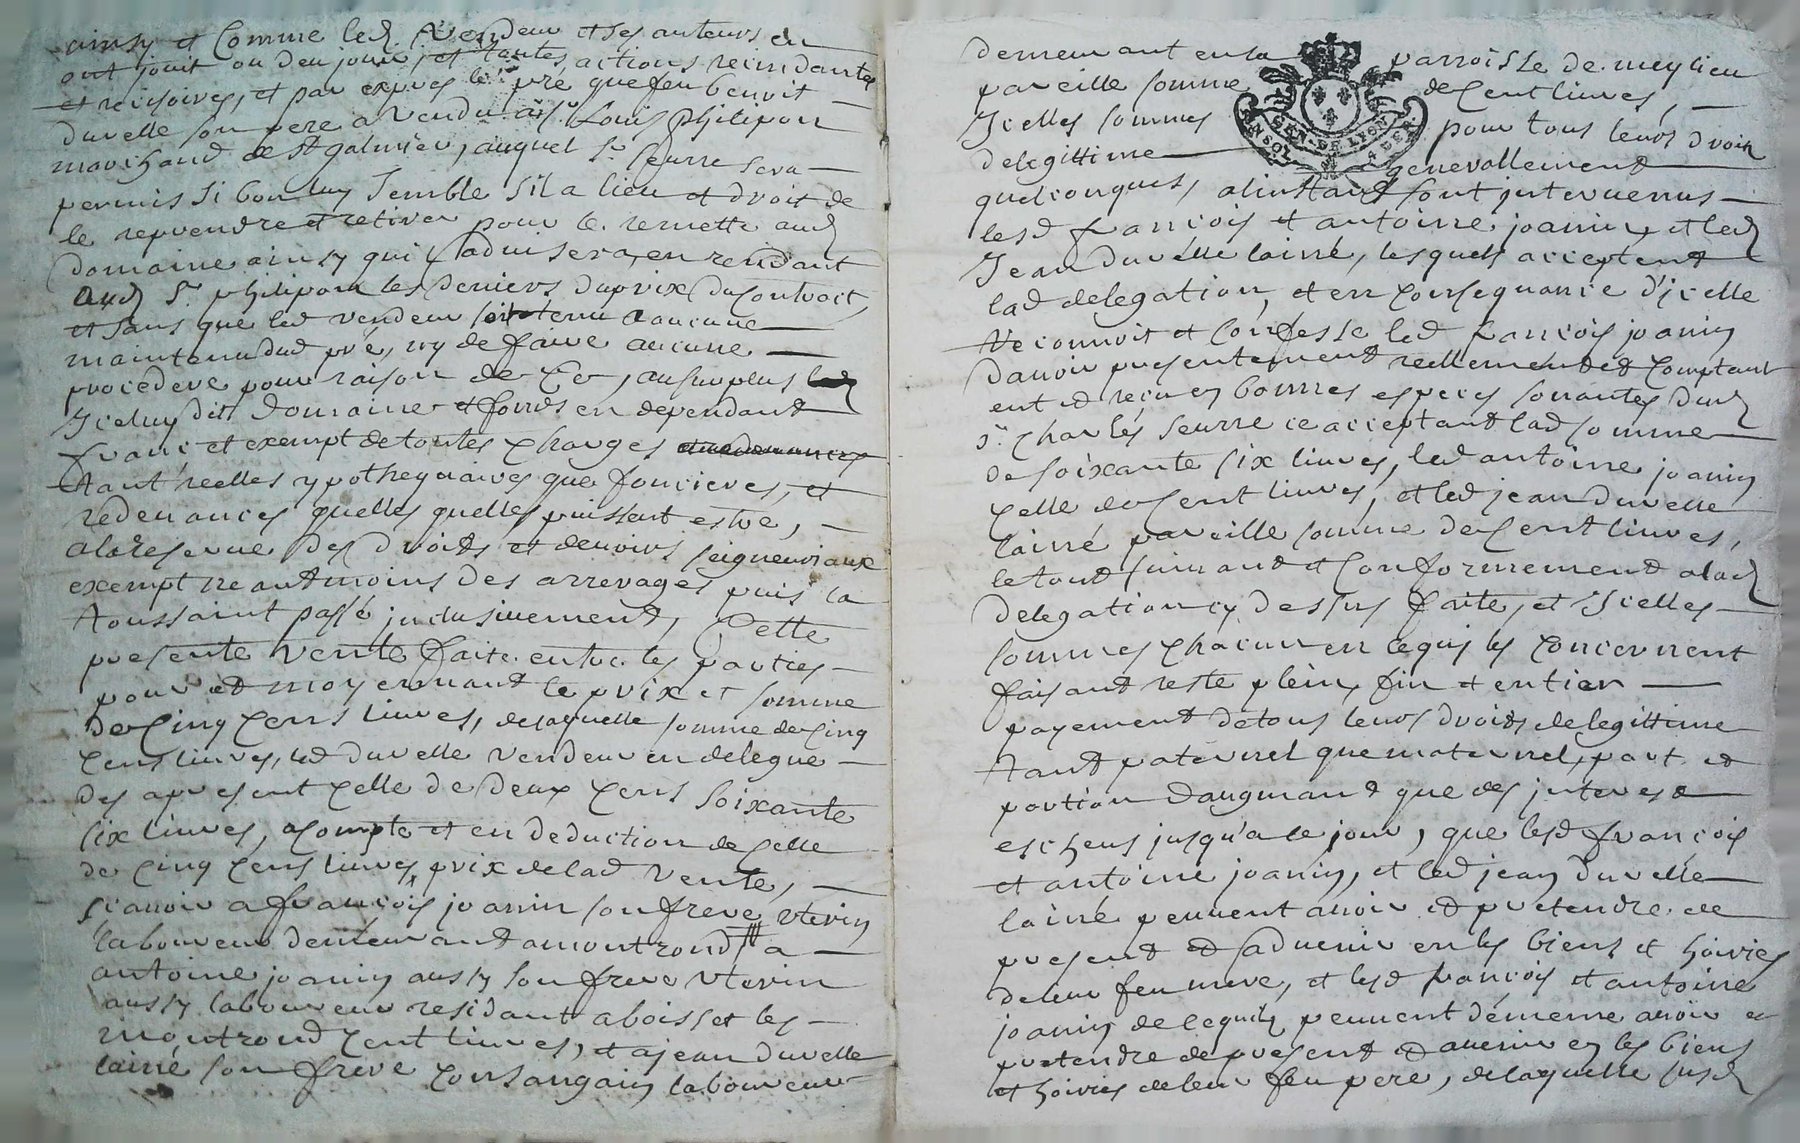 ainsy et Comme led Vendeur et ses auteurs en
ont jouit ou deu jouir, et toutes actions recindantes
et recisoires, et par expres le pré que feu benoit
Duvelle son pere a vendu a Sr Louis philipon
marchand de St galmier, auquel Sr Seurre sera
permis si bon luy semble s'il a lieu et droit de
le reprendre et retirer pour le remettre aud
domaine ainsy qu'il advisera, en rendant
aud Sr philipon les deniers du prix du Contract,
et sans que led vendeur soit tenu a aucune
maintenu dud pré, ny de faire aucune
procedure pour raison de Ce, au surplus
Iceluy dit Domaine et fonds en dependant
franc et exempt de toutes Charges
tant reelles ypothequaires que foncieres, et
redevances quelles quelles puissent estre,
a la reserve des droits et devoirs seigneuriaux
exempt neantmoins des arrerages puis la
toussaint passé inclusivement, Cette
presente vente faite entre les parties
pour et moyennant le prix et somme
De Cinq Cens livres, de laquelle somme de Cinq
Cens livres, led duvelle vendeur en delegue
des apresent Celle de Deux Cens soixante
six livres, a compte et en deduction de Celle
de Cinq Cens livres prix de lad vente,
scavoir a françois joanin son frere vterin
laboureur demeurant a montrond a
antoine joanin aussy son frere vterin
aussy laboureur residant a boisset les
montrond Cent livres, et a jean duvelle
lainé son frere Consangain laboureur
demeurant en la parroisse de meylieu
pareille somme de Cent livres,
Icelles sommes pour tous leurs droits
de legittime generallement
quelconques, a linstant sont intervenus
lesd françois et antoine joanin et led
Jean duvelle lainé, lesquels acceptent
lad delegation, et en Consequance d'icelle
Reconnoit et Confesse led francois joanin
Davoir presentement reellement et Comptant
eut et reçu en bonnes especes sonantes dud
Sr Charles Seurre ce acceptant lad somme
de soixante six livres, led antoine joanin
Celle de Cent livres, et led jean duvelle
lainé pareille somme de Cent livres,
le tout suivant et Conformement a lad
delegation cy dessus faite, et Icelles
sommes Chacun en ce qui les Concernent
faisant reste plein, fin et entier
payement de tous leurs droits de legittime
tant paternel que maternel, part et
portion daugmant que des interest
escheus jusqu'a ce jour, que lesd françois
et antoine joanin, et led jean duvelle
lainé peuvent avoir et pretendre de
present et advenir en les biens et hoiries
de leur feu mere, et lesd francois et antoine
joanin de ce quils peuvent de meme avoir et
pretendre de present et avenir en les biens
et hoiries de leur feu pere, de laquelle susd
GEN. DE LYON